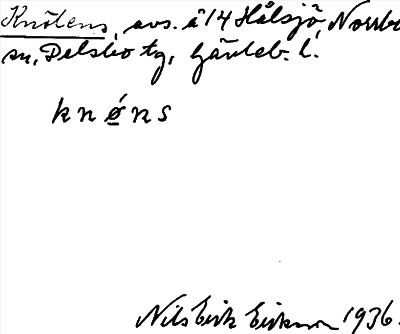 Knölens, avs. å 14 Hålsjö, Norrbo
sn, Delsbo tg, Gävleb. l.
k n ǿ n s
Nils Erik Erikson 1936.